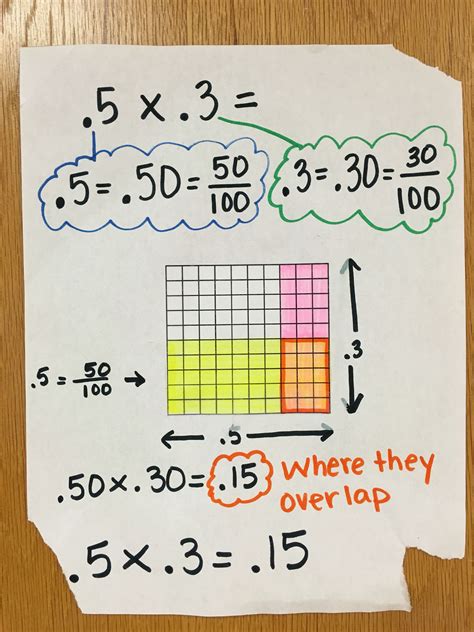 .5 x .3 =
.5 = .50 = 50/100
.3 = .30 = 30/100
.3
.5 = 50/100 →
.5
.50 x .30 = .15 Where they overlap
.5 x .3 = .15